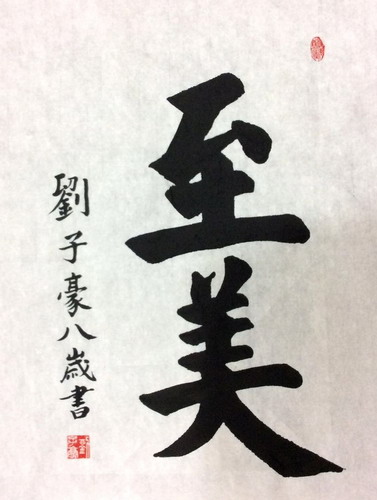 至美
劉子豪八歲書